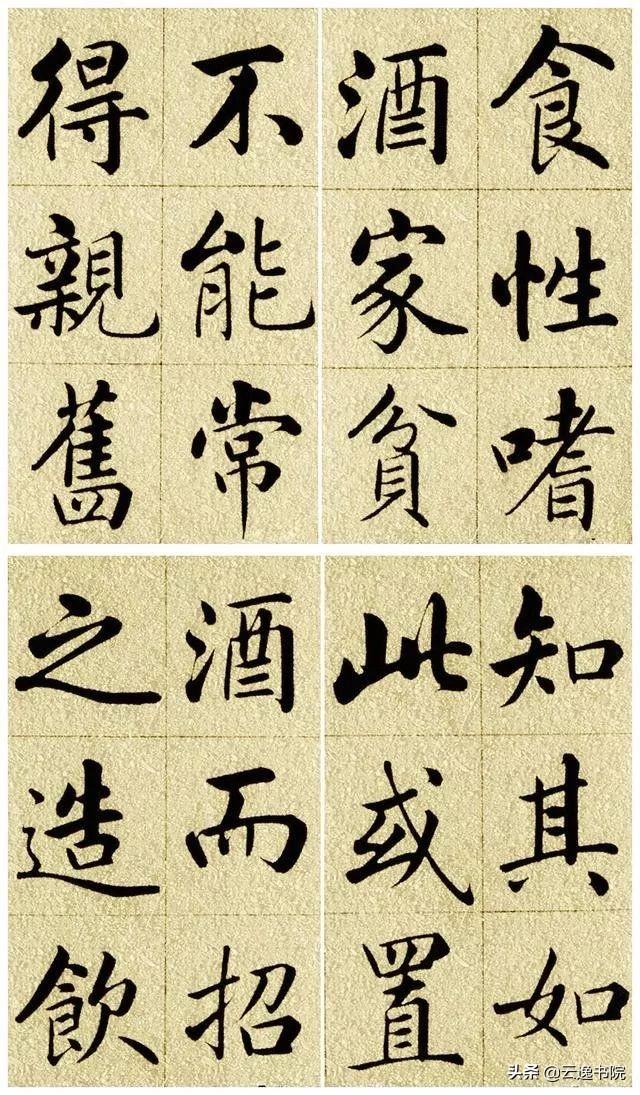 食性嗜
酒家貧
不能常
得親舊
知其如
此或置
酒而招
之造飲
头条 @云逸书院